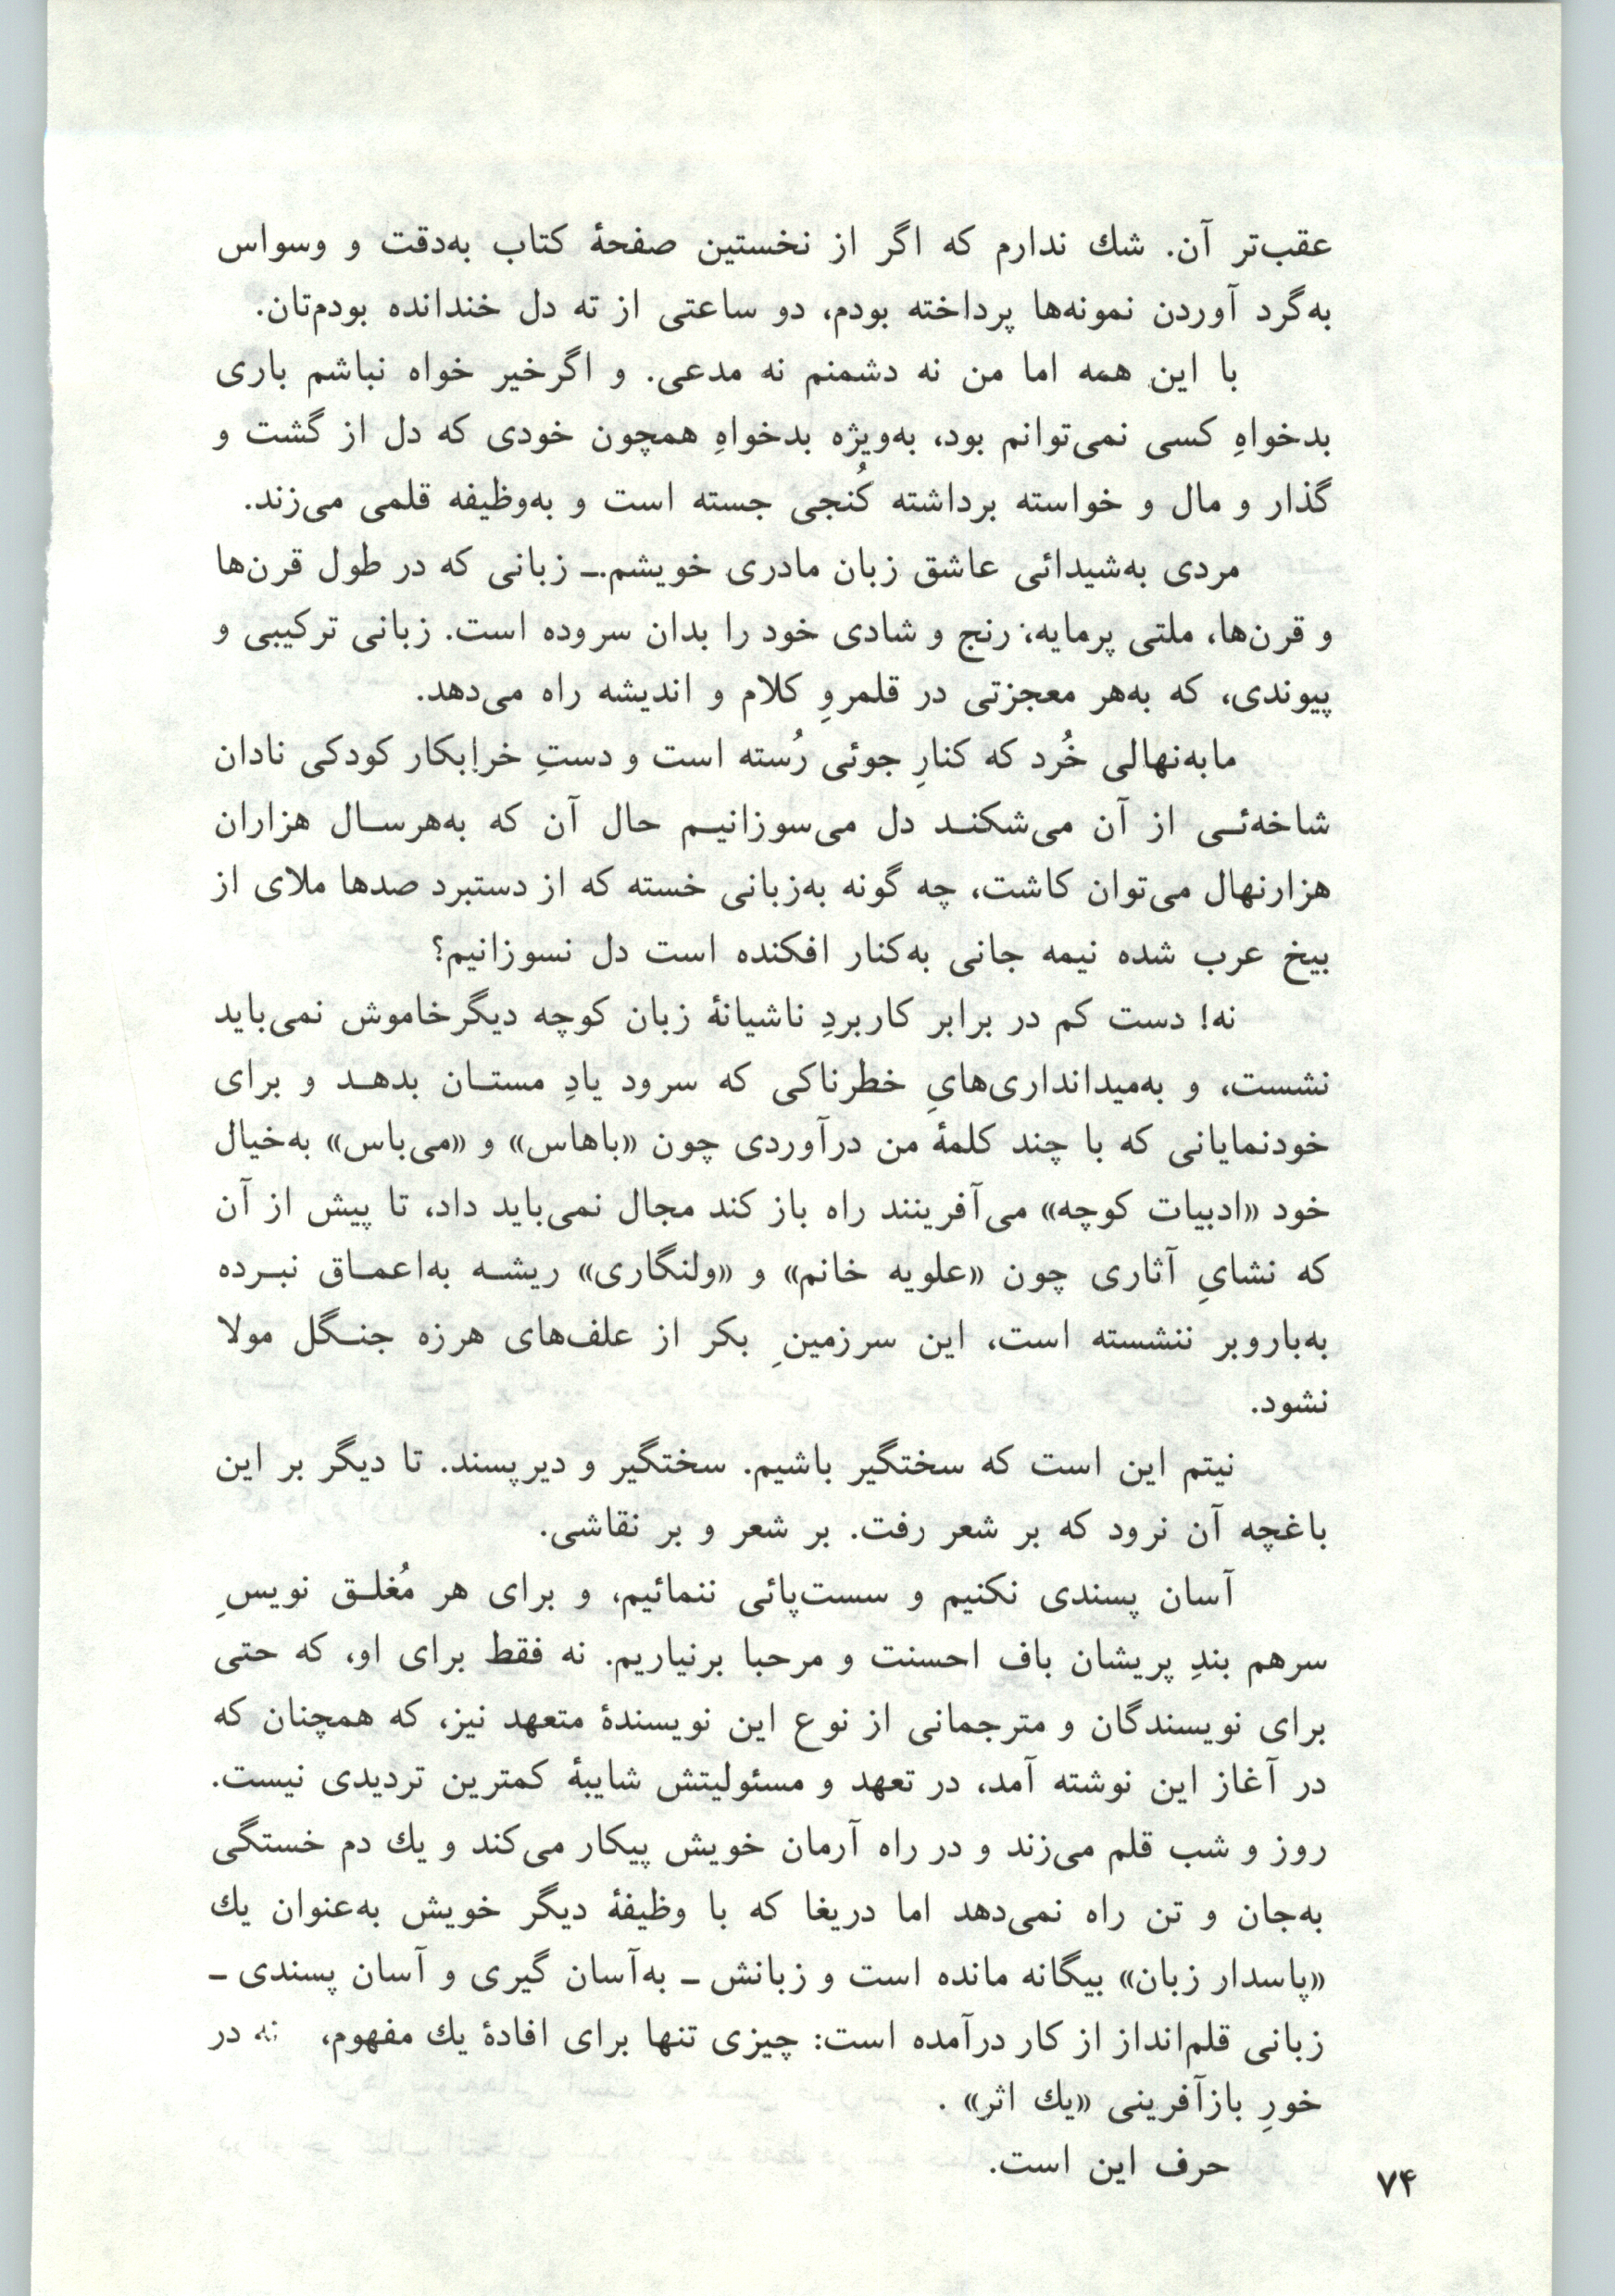 عقب‌تر آن. شك ندارم که اگر از نخستین صفحهٔ کتاب به‌دقت و وسواس
به‌گرد آوردن نمونه‌ها پرداخته بودم، دو ساعتی از ته دل خندانده بودم‌تان.
با این همه اما من نه دشمنم نه مدعی. و اگرخیر خواه نباشم باری
بدخواهِ کسی نمی‌توانم بود، به‌ویژه بدخواهِ همچون خودی که دل از گشت و
گذار و مال و خواسته برداشته کُنجی جسته است و به‌وظیفه قلمی می‌زند.
مردی به‌شیدائی عاشق زبان مادری خویشم.ـ زبانی که در طول قرن‌ها
و قرن‌ها، ملتی پرمایه، رنج و شادی خود را بدان سروده است. زبانی ترکیبی و
پیوندی، که به‌هر معجزتی در قلمروِ کلام و اندیشه راه می‌دهد.
مابه‌نهالی خُرد که کنارِ جوئی رُسته است و دستِ خرابکار کودکی نادان
شاخه‌ئـی از آن می‌شکنـد دل می‌سوزانیـم حال آن که به‌هرسـال هزاران
هزارنهال می‌توان کاشت، چه گونه به‌زبانی خسته که از دستبرد صدها ملای از
بیخ عرب شده نیمه جانی به‌کنار افکنده است دل نسوزانیم؟
نه! دست کم در برابر کاربردِ ناشیانهٔ زبان کوچه دیگرخاموش نمی‌باید
نشست، و به‌میدانداری‌هایِ خطرناکی که سرود یادِ مستـان بدهـد و برای
خودنمایانی که با چند کلمهٔ من درآوردی چون «باهاس» و «می‌باس» به‌خیال
خود «ادبیات کوچه» می‌آفرینند راه باز کند مجال نمی‌باید داد، تا پیش از آن
که نشایِ آثاری چون «علویه خانم» و «ولنگاری» ریشـه به‌اعمـاق نبـرده
به‌باروبر ننشسته است، این سرزمینِ بکر از علف‌های هرزه جنـگل مولا
نشود.
نیتم این است که سختگیر باشیم. سختگیر و دیرپسند. تا دیگر بر این
باغچه آن نرود که بر شعر رفت. بر شعر و بر نقاشی.
آسان پسندی نکنیم و سست‌پائی ننمائیم، و برای هر مُغلـق نویسِ
سرهم بندِ پریشان باف احسنت و مرحبا برنیاریم. نه فقط برای او، که حتی
برای نویسندگان و مترجمانی از نوع این نویسندهٔ متعهد نیز، که همچنان که
در آغاز این نوشته آمد، در تعهد و مسئولیتش شایبهٔ کمترین تردیدی نیست.
روز و شب قلم می‌زند و در راه آرمان خویش پیکار می‌کند و یك دم خستگی
به‌جان و تن راه نمی‌دهد اما دریغا که با وظیفهٔ دیگر خویش به‌عنوان یك
«پاسدار زبان» بیگانه مانده است و زبانش ـ به‌آسان گیری و آسان پسندی ـ
زبانی قلم‌انداز از کار درآمده است: چیزی تنها برای افادهٔ یك مفهوم، نه در
خورِ بازآفرینی «یك اثر» .
حرف این است.
۷۴